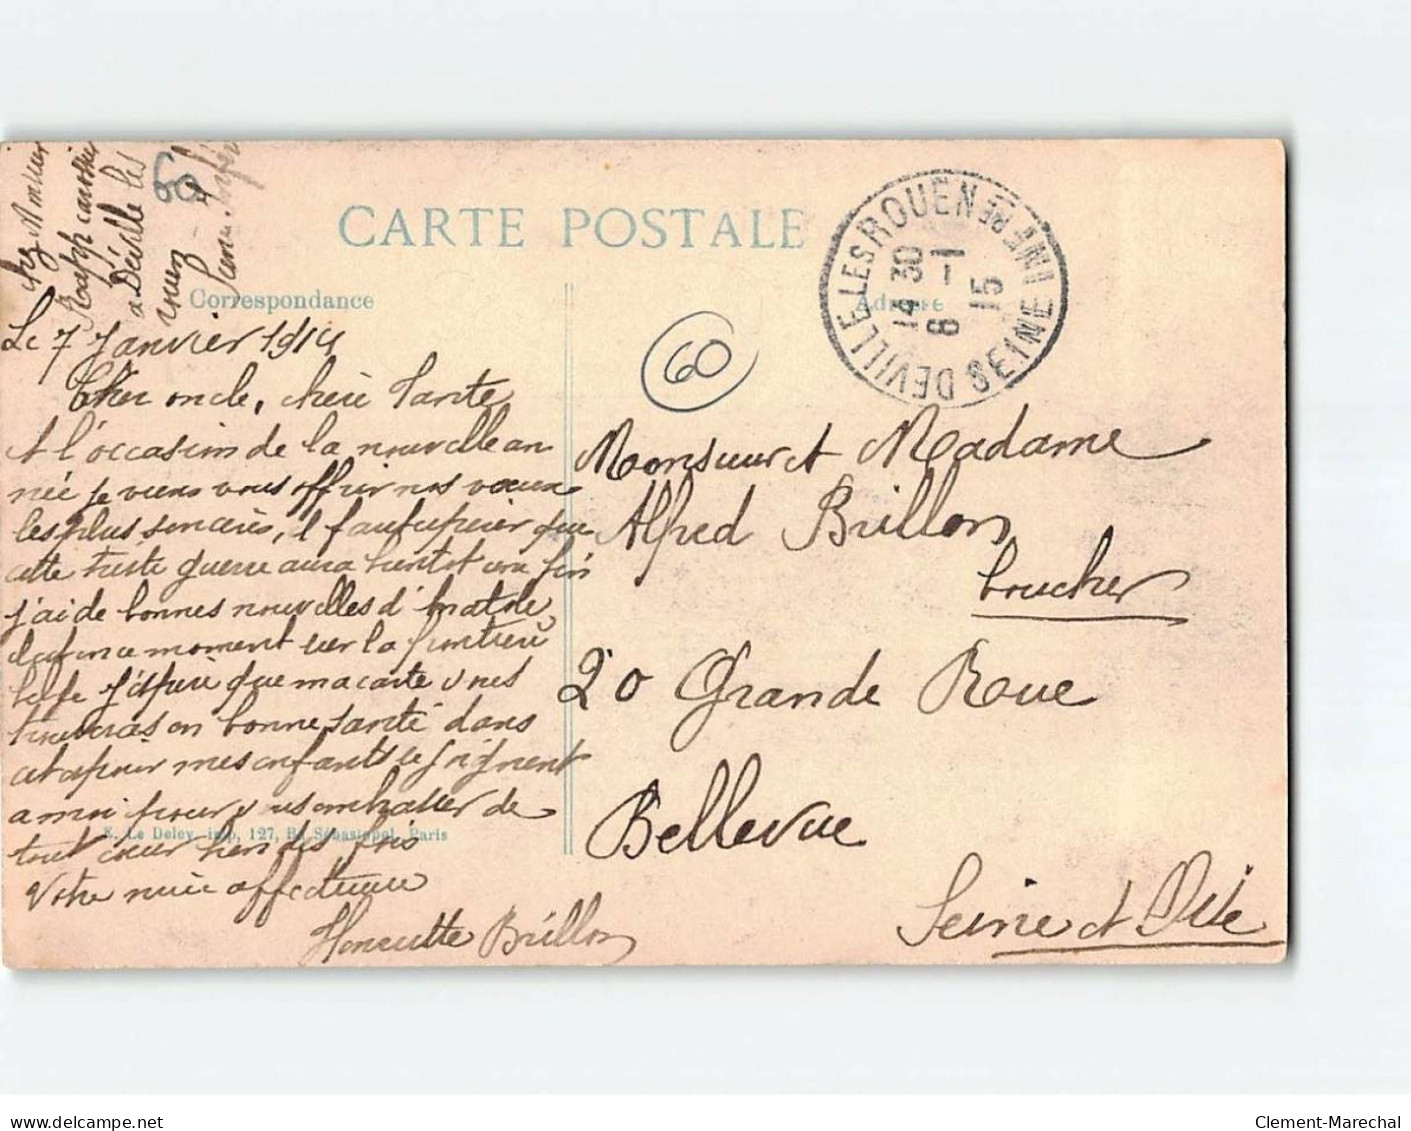 chez Monsieur
Joseph
à Déville les
Rouen -
Seine Infre
60
CARTE POSTALE
Correspondance
Adresse
DEVILLE LES ROUEN
SEINE INFERRE
14 30
6 - 1
15
60
Le 7 Janvier 1914
Cher oncle, chère Tante
A l'occasion de la nouvelle an
née je viens vous offrir nos voeux
les plus sincères, il faut espérer que
cette triste guerre aura bientôt une fin
j'ai de bonnes nouvelles d'
en ce moment sur la frontière
belge j'espère que ma carte vous
trouveras en bonne santé dans
cet espoir mes enfants se joignent
a moi pour vous embrasser de
tout cœur bien des fois
Votre nièce affectueuse
Henriette Brillon
E. Le Deley, imp., 127, Bd Sébastopol, Paris
Monsieur et Madame
Alfred Brillon
boucher
20 Grande Roue
Bellevue
Seine et Oise
www.delcampe.net
Clement-Marechal